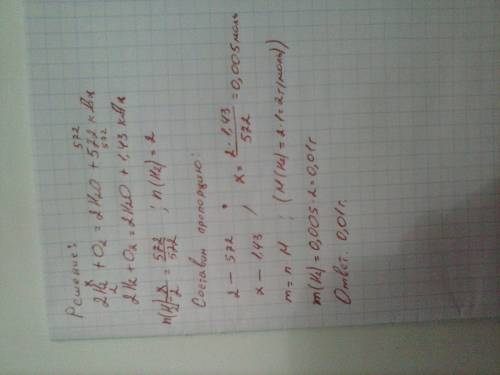 Решение:
x 572
2H₂ + O₂ = 2H₂O + 572 кДж
2 572
2H₂ + O₂ = 2H₂O + 1,43 кДж
x/2 = 572/572 ; n(H₂) = 2
Составим пропорцию:
2 — 572
x — 1,43 , x = 2·1,43/572 = 0,005 моль
m = n·M ; (M(H₂) = 2·1 = 2 г/моль)
m(H₂) = 0,005·2 = 0,01 г
Ответ: 0,01 г.